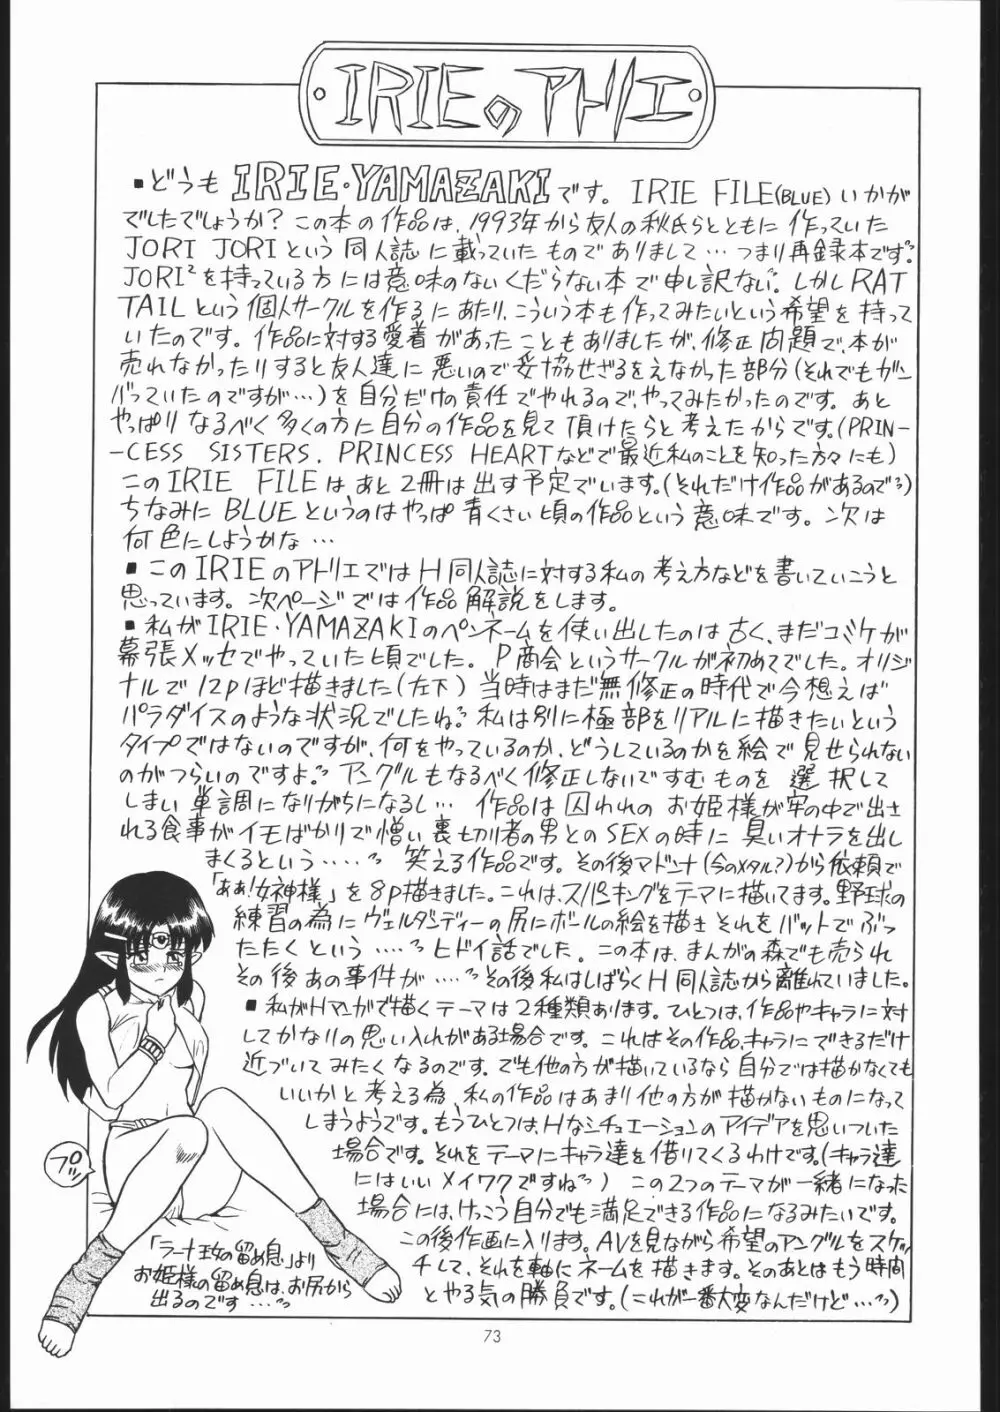 IRIEのアトリエ
■どうも IRIE・YAMAZAKIです。IRIE FILE(BLUE)いかが
でしたでしょうか?この本の作品は、1993年から友人の秋氏らとともに作っていた
JORI JORIという同人誌に載っていたものでありまして…つまり再録本です。
JORI²を持っている方には意味のないくだらない本で申し訳ない。しかしRAT
TAILという個人サークルを作るにあたり、こういう本も作ってみたいという希望を持って
いたのです。作品に対する愛着があったこともありましたが、修正問題で、本が
売れなかったりすると友人達に悪いので妥協せざるをえなかった部分(それでもガン
バっていたのですが…)を自分だけの責任でやれるので、やってみたかったのです。あと
やっぱりなるべく多くの方に自分の作品を見て頂けたらと考えたからです。(PRIN-
-CESS SISTERS、PRINCESS HEARTなどで最近私のことを知った方々にも)
このIRIE FILEはあと2冊は出す予定でいます。(それだけ作品があるので)
ちなみにBLUEというのはやっぱ青くさい頃の作品という意味です。次は
何色にしようかな…
■このIRIEのアトリエではH同人誌に対する私の考え方などを書いていこうと
思っています。次ページでは作品解説をします。
■私がIRIE・YAMAZAKIのペンネームを使い出したのは古く、まだコミケが
幕張メッセでやっていた頃でした。P商会というサークルが初めてでした。オリジ
ナルで12pほど描きました(左下)当時はまだ無修正の時代で今想えば
パラダイスのような状況でしたね。私は別に極部をリアルに描きたいという
タイプではないのですが、何をやっているのか、どうしているのかを絵で見せられない
のがつらいのですよ。アングルもなるべく修正しないですむものを選択して
しまい単調になりがちになるし…作品は囚われのお姫様が牢の中で出さ
れる食事がイモばかりで憎い裏切り者の男とのSEXの時に臭いオナラを出し
まくるという……笑える作品です。その後マドンナ(今のメタル?)から依頼で
「ああ!女神様」を8p描きました。これは、スパンキングをテーマに描いてます。野球の
練習の為にヴェルダンディーの尻にボールの絵を描きそれをバットでぶっ
たたくという……ヒドイ話でした。この本は、まんがの森でも売られ
その後あの事件が……その後私はしばらくH同人誌から離れていました。
■私がHマンガで描くテーマは2種類あります。ひとつは、作品やキャラに対
してかなりの思い入れがある場合です。これはその作品、キャラにできるだけ
近づいてみたくなるのです。でも他の方が描いているなら自分では描かなくても
いいかと考える為、私の作品はあまり他の方が描かないものになって
しまうようです。もうひとつは、Hなシチュエーションのアイデアを思いついた
場合です。それをテーマにキャラ達を借りてくるわけです。(キャラ達
にはいいメイワクですね)この2つのテーマが一緒になった
場合には、けっこう自分でも満足できる作品になるみたいです。
この後作画に入ります。AVを見ながら希望のアングルをスケッ
チして、それを軸にネームを描きます。そのあとはもう時間
とやる気の勝負です。(これが一番大変なんだけど…)
プゥ
「ラーナ王女の留め息」より
お姫様の留め息は、お尻から
出るのです…
73